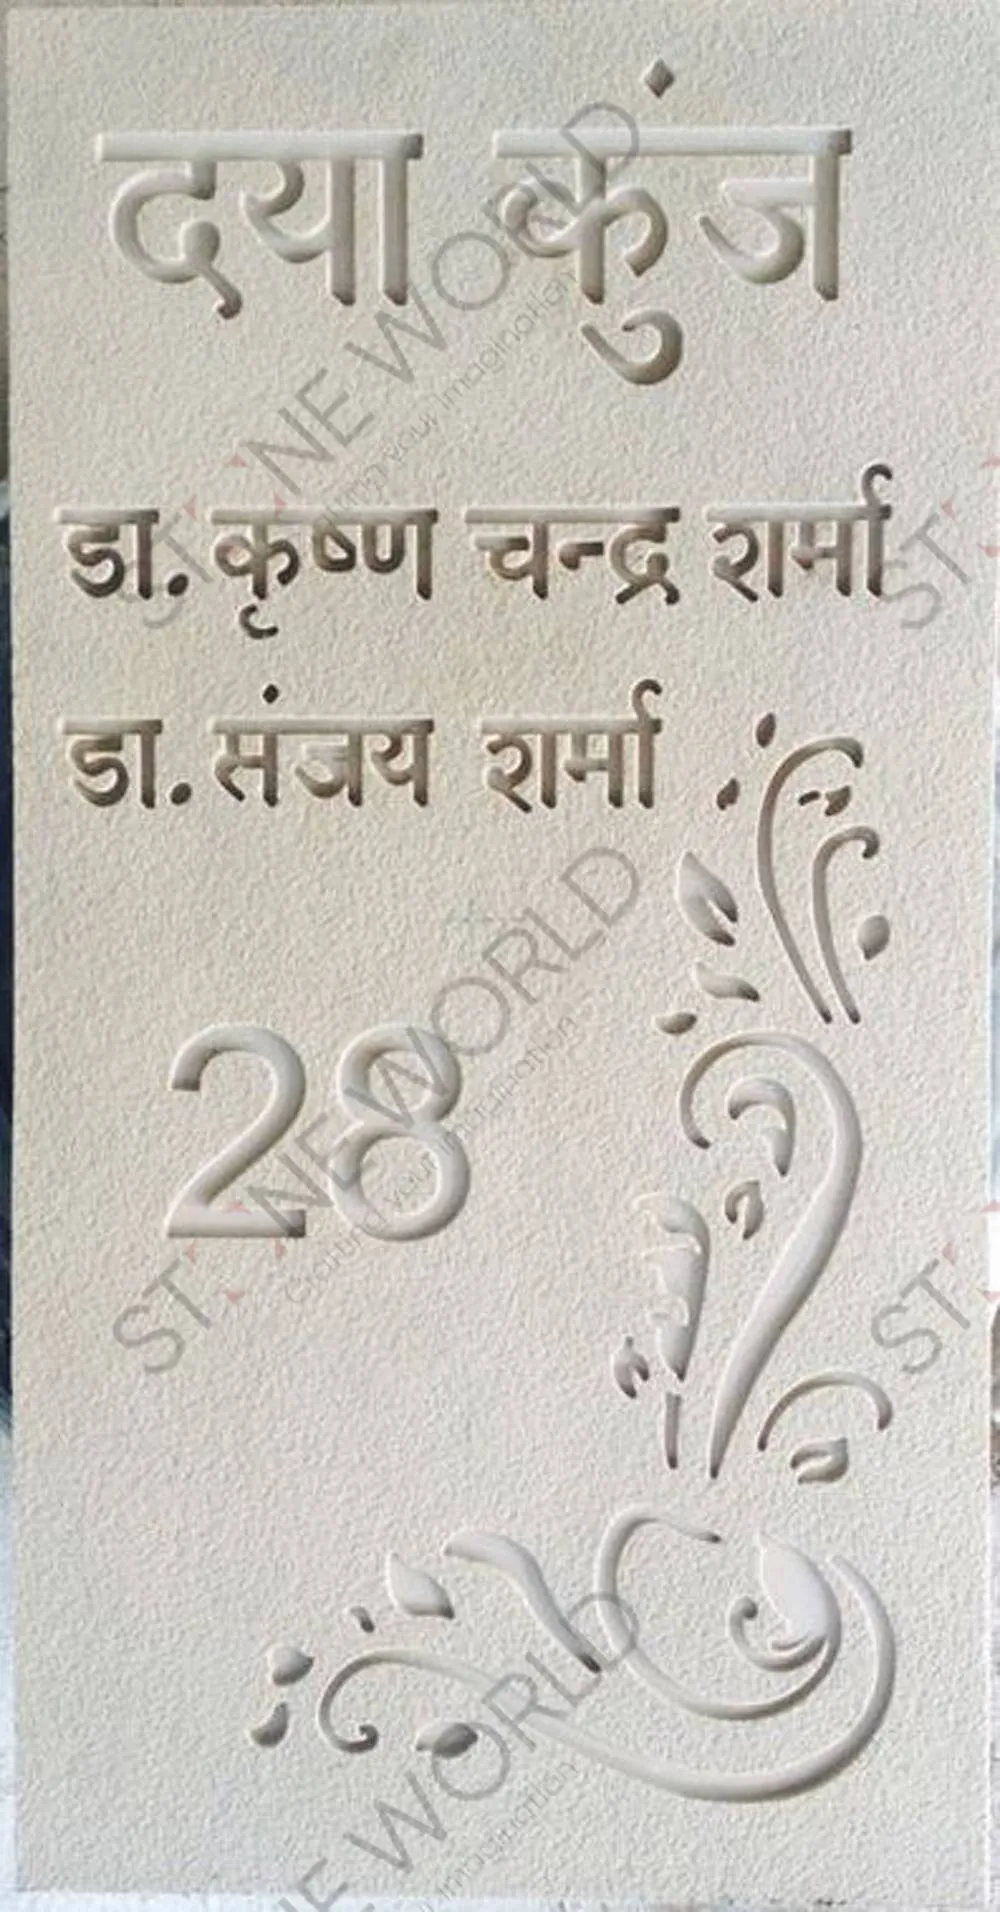 दया कुंज
डा. कृष्ण चन्द्र शर्मा
डा. संजय शर्मा
28
STONE WORLD
Creating your imagination